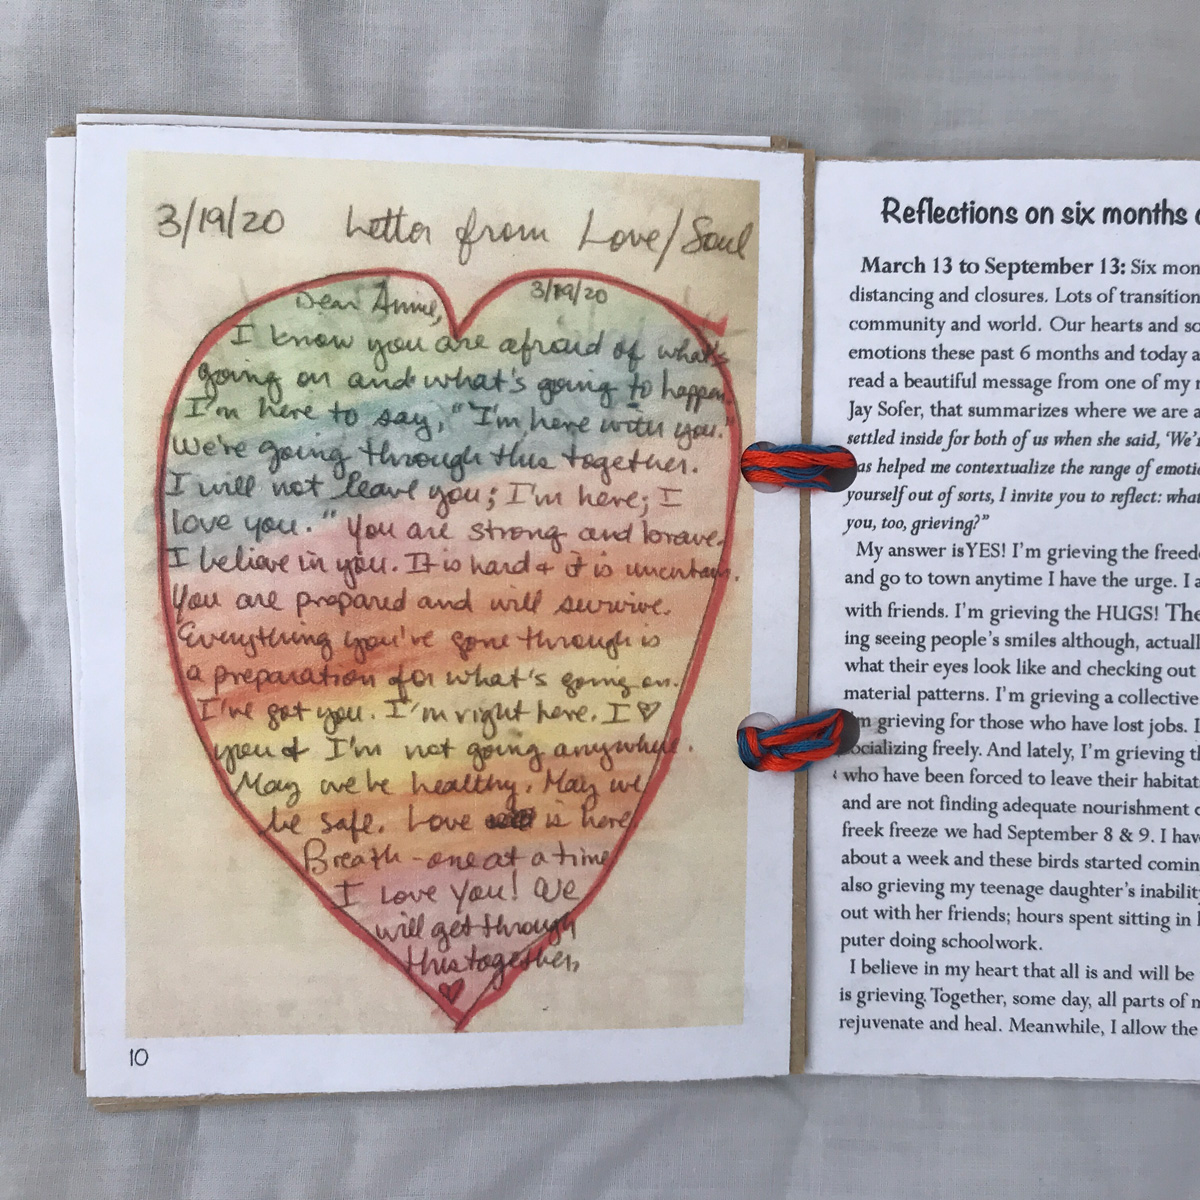 3/19/20 Letter from Love/Soul
Dear Annie, 3/19/20
I know you are afraid of what's
going on and what's going to happen.
I'm here to say, "I'm here with you."
We're going through this together.
I will not leave you; I'm here; I
love you." You are strong and brave.
I believe in you. It is hard & it is uncertain.
You are prepared and will survive.
Everything you've gone through is
a preparation for what's going on.
I've got you. I'm right here. I ♡
you & I'm not going anywhere.
May we be healthy. May we
be safe. Love is here
Breath - one at a time
I love you! We
will get through
this together,
10
Reflections on six months
March 13 to September 13: Six mon
distancing and closures. Lots of transition
community and world. Our hearts and so
emotions these past 6 months and today a
read a beautiful message from one of my
Jay Sofer, that summarizes where we are a
settled inside for both of us when she said, 'We'
as helped me contextualize the range of emotio
yourself out of sorts, I invite you to reflect: what
you, too, grieving?"
My answer is YES! I'm grieving the freed
and go to town anytime I have the urge. I a
with friends. I'm grieving the HUGS! The
ing seeing people's smiles although, actuall
what their eyes look like and checking out
material patterns. I'm grieving a collective
I'm grieving for those who have lost jobs. I
ocializing freely. And lately, I'm grieving th
who have been forced to leave their habitat
and are not finding adequate nourishment
freek freeze we had September 8 & 9. I hav
about a week and these birds started comin
also grieving my teenage daughter's inability
out with her friends; hours spent sitting in
puter doing schoolwork.
I believe in my heart that all is and will be
is grieving. Together, some day, all parts of
rejuvenate and heal. Meanwhile, I allow the